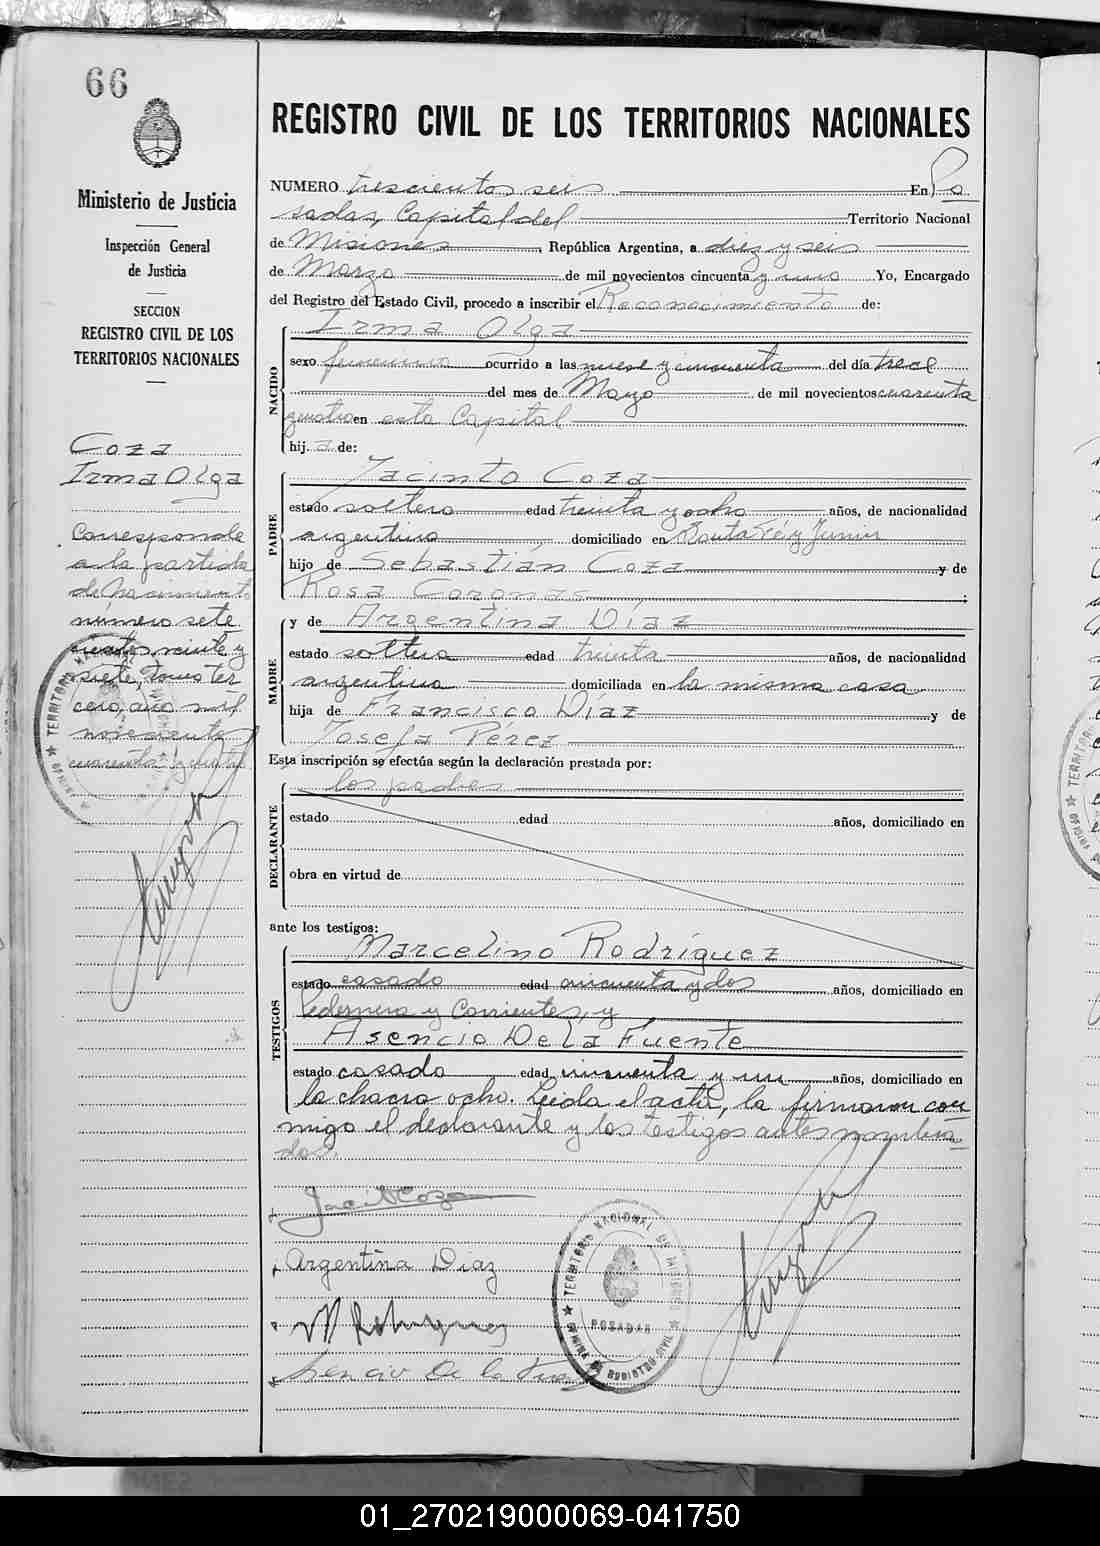 66
Ministerio de Justicia
Inspección General
de Justicia
SECCION
REGISTRO CIVIL DE LOS
TERRITORIOS NACIONALES
Coza
Irma Olga
Corresponde
a la partida
de Nacimiento
número sete
cientos veinte y
siete, tomo ter
cero, año mil
novecientos
cuarenta y cuatro
REGISTRO CIVIL DE LOS TERRITORIOS NACIONALES
NUMERO trescientos seis En Po
sadas, Capital del Territorio Nacional
de Misiones, República Argentina, a diez y seis
de Marzo de mil novecientos cincuenta y uno Yo, Encargado
del Registro del Estado Civil, procedo a inscribir el Reconocimiento de:
NACIDO
Irma Olga
sexo femenino ocurrido a las nueve y cincuenta del día trece
del mes de Marzo de mil novecientos cuarenta
y cuatro en esta Capital
hij a de:
PADRE
Jacinto Coza
estado soltero edad treinta y ocho años, de nacionalidad
argentina domiciliado en Santa Fé y Junin
hijo de Sebastián Coza y de
Rosa Coronas;
MADRE
y de Argentina Díaz
estado soltera edad treinta años, de nacionalidad
argentina domiciliada en la misma casa
hija de Francisco Díaz y de
Josefa Perez
Esta inscripción se efectúa según la declaración prestada por:
DECLARANTE
los padres
estado edad años, domiciliado en
obra en virtud de
ante los testigos:
TESTIGOS
Marcelino Rodríguez
estado casado edad cincuenta y dos años, domiciliado en
Pedernera y Corrientes, y
Asencio De la Fuente
estado casado edad cincuenta y un años, domiciliado en
la chacra ocho. Leida el acta, la firmaron con
migo el declarante y los testigos antes nombra
dos.
Jacinto Coza
Argentina Diaz
M Rodriguez
Asencio De la Fuente
TERRITORIO NACIONAL DE MISIONES
POSADAS
OFICINA DE REGISTRO CIVIL
01_270219000069-041750